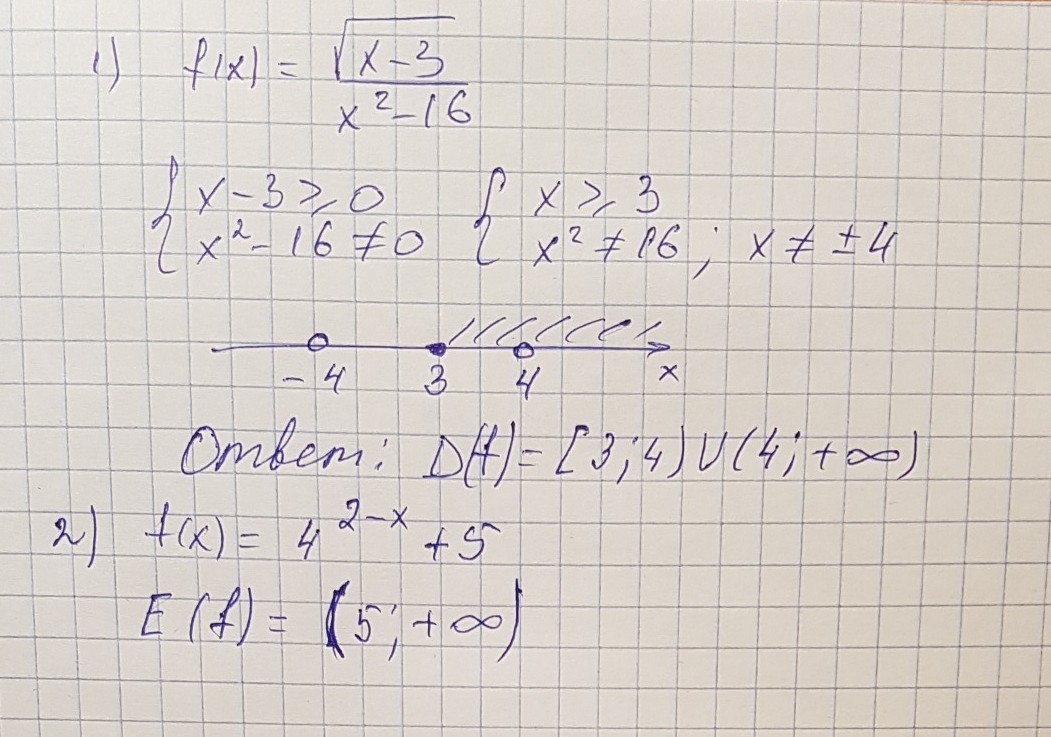 1) f(x) = √(x-3) / (x²-16)
{ x-3 ⩾ 0 { x ⩾ 3
{ x²-16 ≠ 0 { x² ≠ 16 ; x ≠ ±4
-4 3 4 x
Ответ: D(f) = [3;4) U (4; +∞)
2) f(x) = 4^(2-x) + 5
E(f) = (5; +∞)